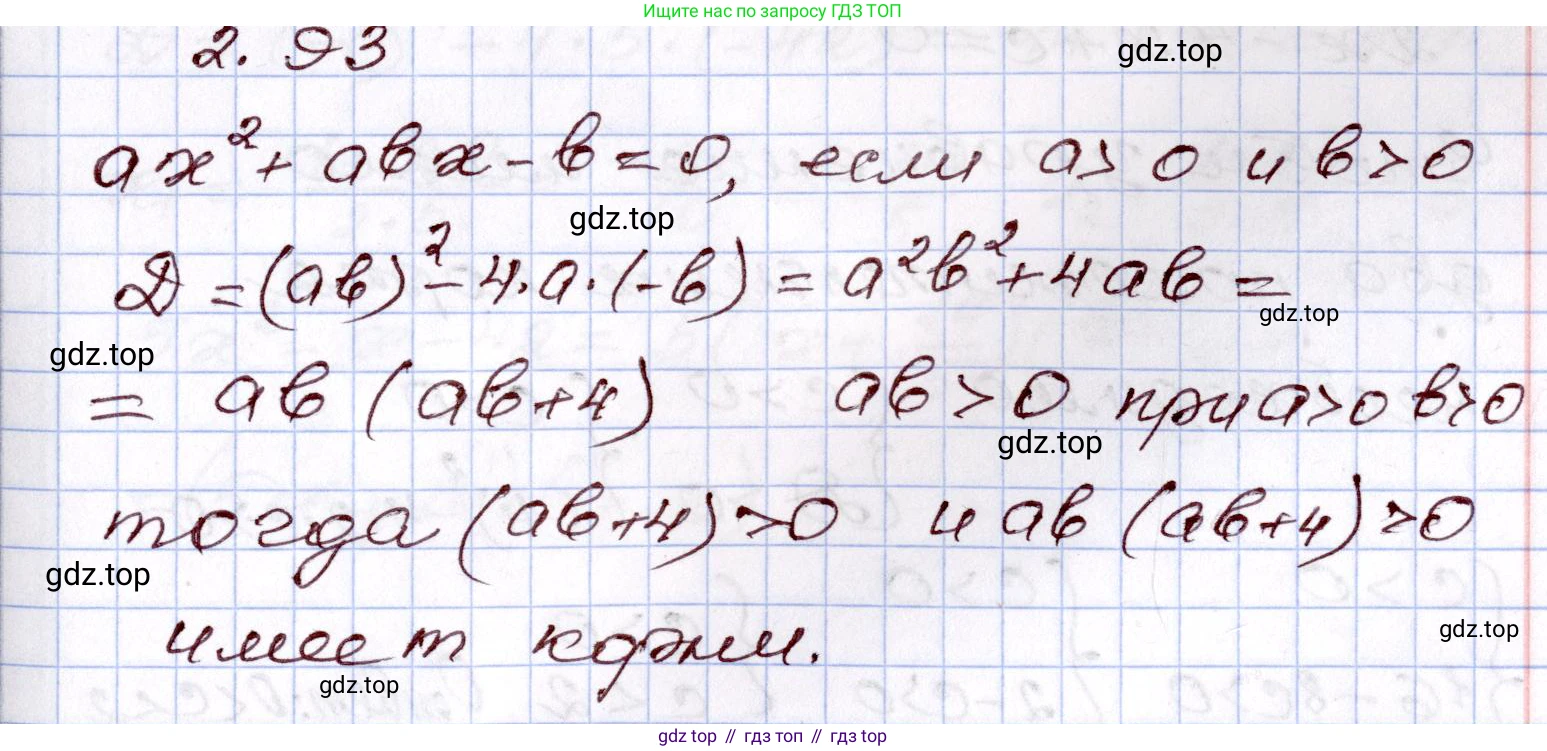 Ищите нас по запросу ГДЗ ТОП
2.93
gdz.top
ax² + abx - b = 0, если a > 0 и b > 0
gdz.top
D = (ab)² - 4·a·(-b) = a²b² + 4ab =
gdz.top
gdz.top
= ab (ab+4) ab > 0 при a>0 b>0
gdz.top
тогда (ab+4) >0 и ab (ab+4) >0
gdz.top
имеет корни.
gdz.top
gdz.top
gdz top // гдз топ // гдз top